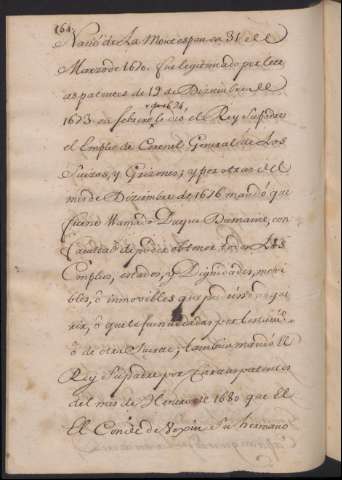 164
Nacio de La Montespan en 31 del
Marzo de 1670. fue legitimado por letr
as patentes de 19 de Diziembre de
1673. en febrero de 1674, le dio el Rey Su padre
el Empleo de Coronel General de Los
Suizos, y Grizones; y por otras del
mes de Diziembre de 1676 mandó que
fuese llamado Duque Dumaine, con
facultad de poder obtener todos Los
Empleos, estados, y Dignidades, movi
bles, ò inmovibles que pudiesse adqui
rir, ò que le fuesen dadas por
ò de otra Suerte; tambien mandó el
Rey Su padre por Cartas patentes
del mes de Henero de 1680 que el
El Conde de Vexin Su hermano